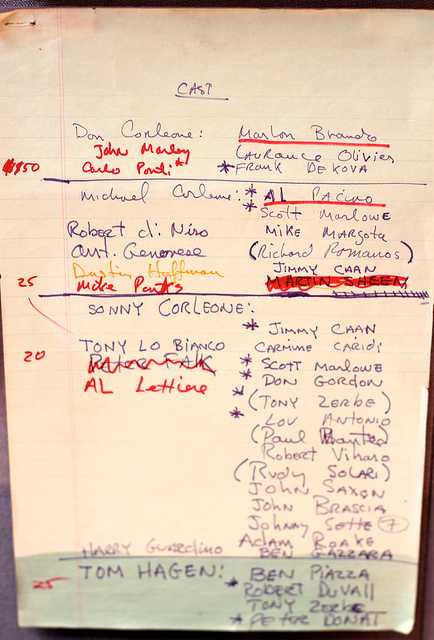 CAST
Don Corleone: Marlon Brando
John Marley LAURance Olivier
Carlo Ponti * * FRANK DE KOVA
Michael Corleone: * AL PACINO
* Scott MARLOWE
Robert di. Niro MIKE MARGOTA
Ant. Genovese (Richard Romanos)
Dustin Hoffman JIMMY CAAN
25 Mike Parks MARTIN SHEEN
SONNY CORLEONE:
* JIMMY CAAN
TONY LO BIANCO CARMINE CARIDI
20 PETER FALK * SCOTT MARLOWE
AL Lettiere * DON GORDON
* (TONY ZERBE)
* LOU ANTONIO
(Paul
Robert Viharo
(RUDY SOLARI)
JOHN SAXON
JOHN BRASCIA
Johnny Sette 7
Adam ROAKE
HARRY Guardino BEN GAZZARA
TOM HAGEN: BEN PIAZZA
25 * ROBERT DUVALL
TONY ZERBE
* PETER DONAT